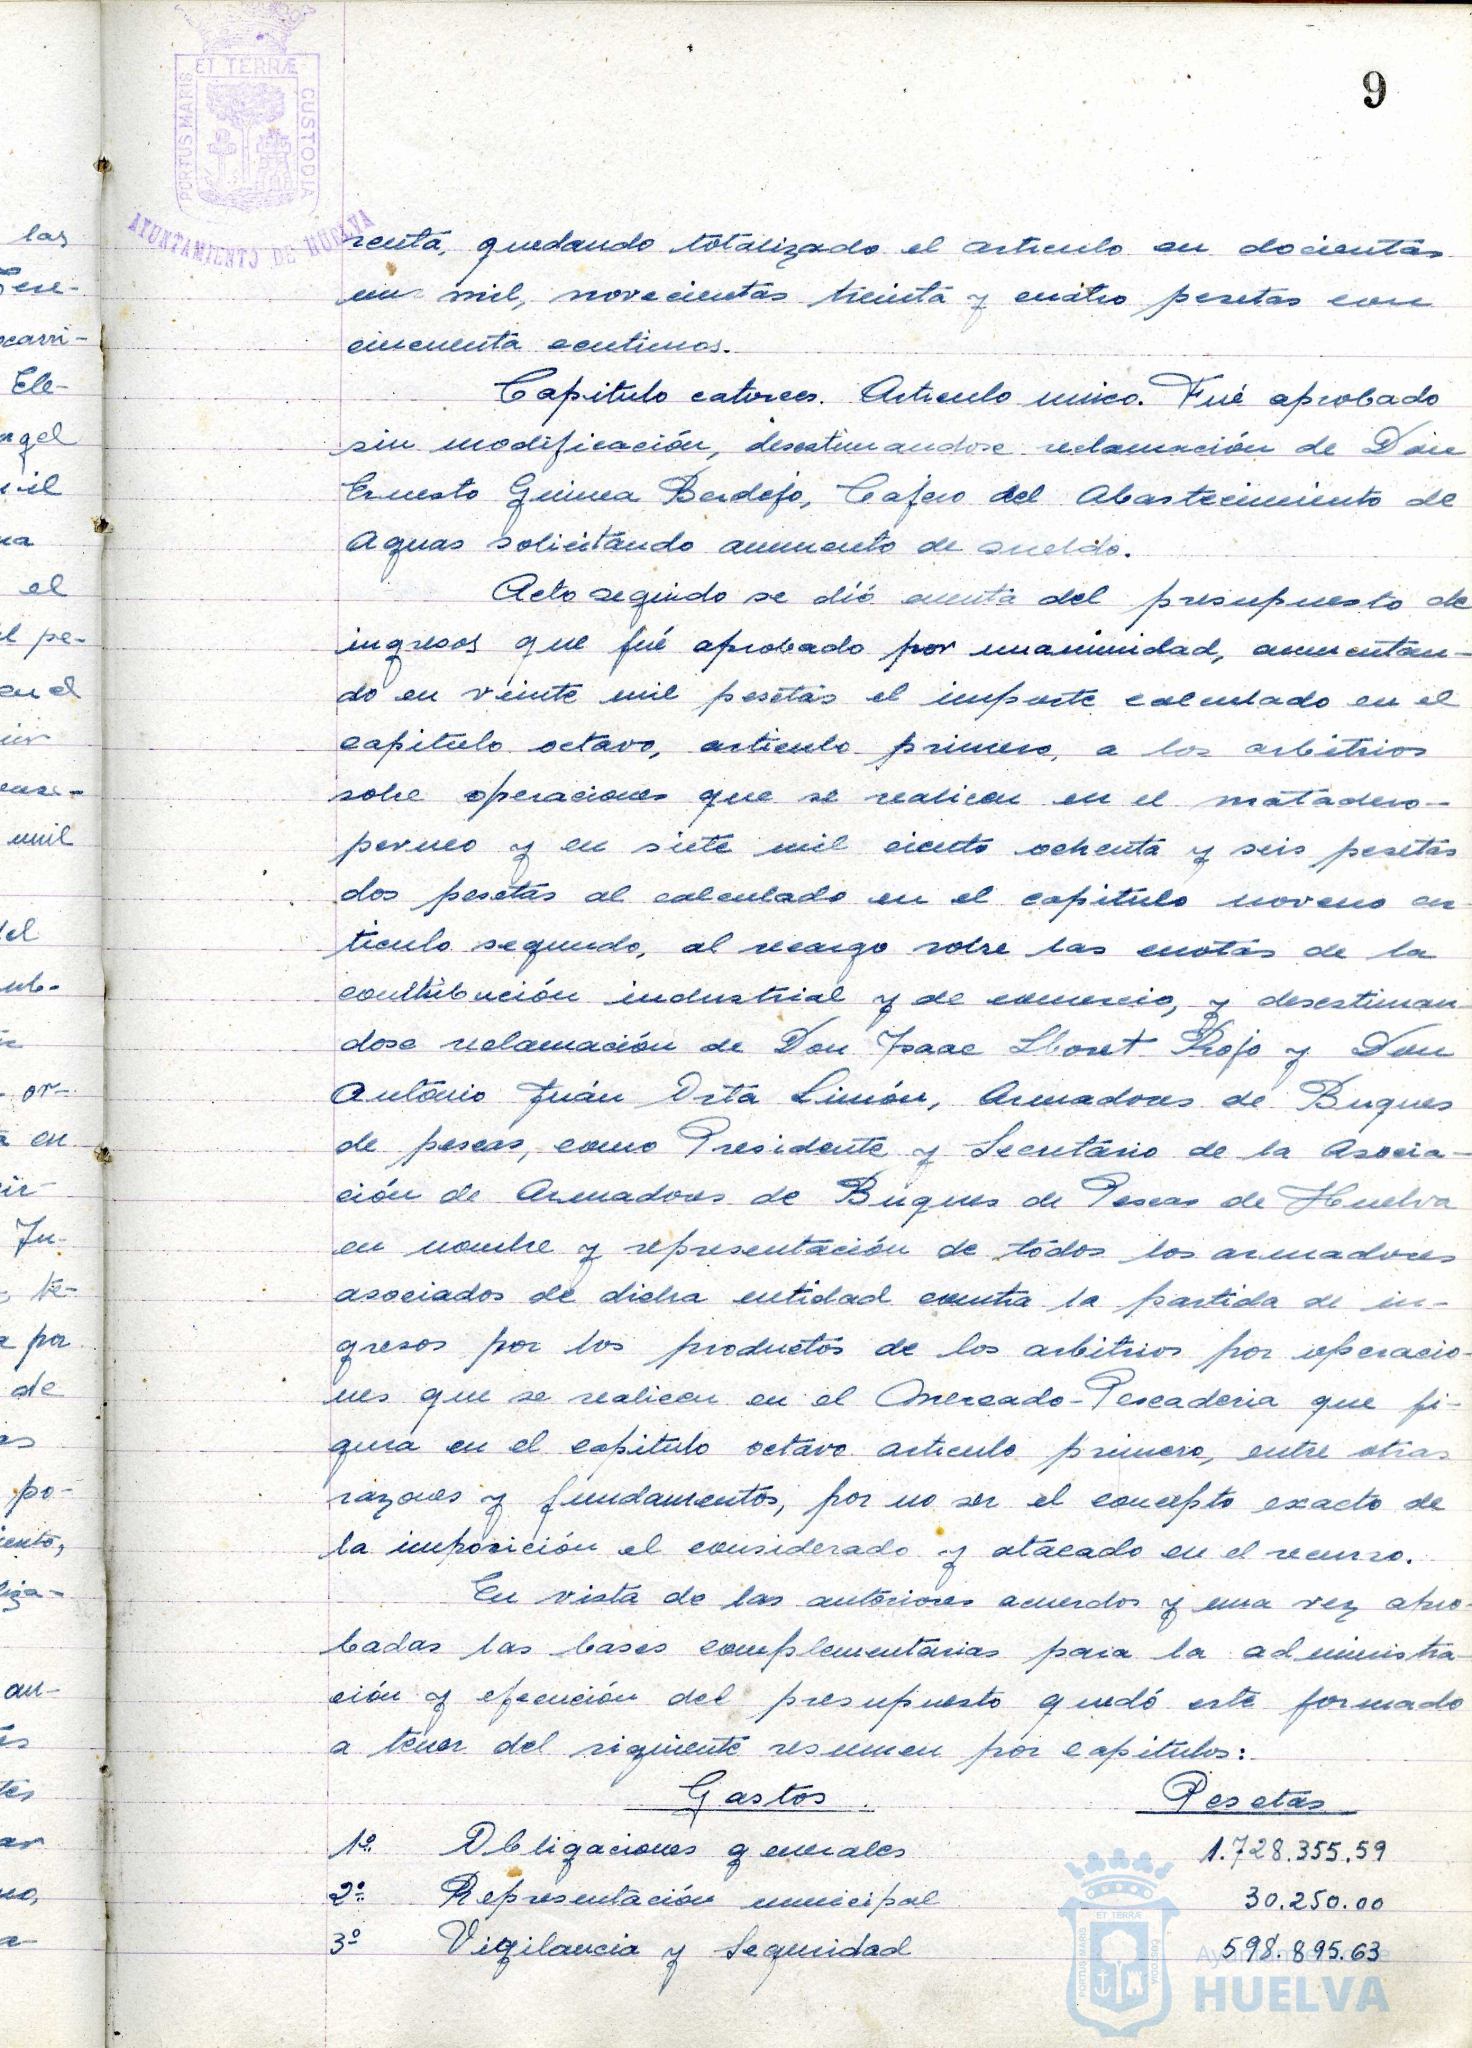 9
ET TERRÆ
PORTUS MARIS
CUSTODIA
AYUNTAMIENTO DE HUELVA
renta, quedando totalizado el articulo en docientas
un mil, novecientas treinta y cuatro pesetas con
cincuenta centimos.
Capitulo catorce. Articulo unico. Fué aprobado
sin modificación, desestimandose reclamación de Don
Ernesto Guinea Berdejo, Cajero del Abastecimiento de
Aguas solicitando aumento de sueldo.
Acto seguido se dió cuenta del presupuesto de
ingresos que fué aprobado por unanimidad, aumentan-
do en veinte mil pesetas el importe calculado en el
capitulo octavo, articulo primero, a los arbitrios
sobre operaciones que se realicen en el matadero-
perneo y en siete mil ciento ochenta y seis pesetas
dos pesetas al calculado en el capitulo noveno ar
ticulo segundo, al recargo sobre las cuotas de la
contribución industrial y de comercio, y desestiman
dose reclamación de Don Isaac Lloret Rojo y Don
Antonio Juán Orta Limón, Armadores de Buques
de pescas, como Presidente y Secretario de la Asocia-
ción de Armadores de Buques de Pescas de Huelva
en nombre y representación de todos los armadores
asociados de dicha entidad contra la partida de in-
gresos por los productos de los arbitrios por operacio-
nes que se realicen en el Mercado-Pescaderia que fi-
gura en el capitulo octavo articulo primero, entre otras
razones y fundamentos, por no ser el concepto exacto de
la imposición el considerado y atacado en el recurso.
En vista de las anteriores acuerdos y una vez apro-
badas las bases complementarias para la administra-
ción y ejecución del presupuesto quedó este formado
a tenor del siguiente resumen por capitulos:
Gastos. Pesetas
1º Obligaciones generales 1.728.355,59
2º Representación municipal 30.250.00
3º Vigilancia y Seguridad 598.895.63
las
carri-
Ele-
ngel
el
l pe-
en el
mil
del
or-
en
Ju-
te-
por
de
po-
iento,
liza-
ET TERRÆ
PORTUS MARIS
CUSTODIA
Ayuntamiento de
HUELVA